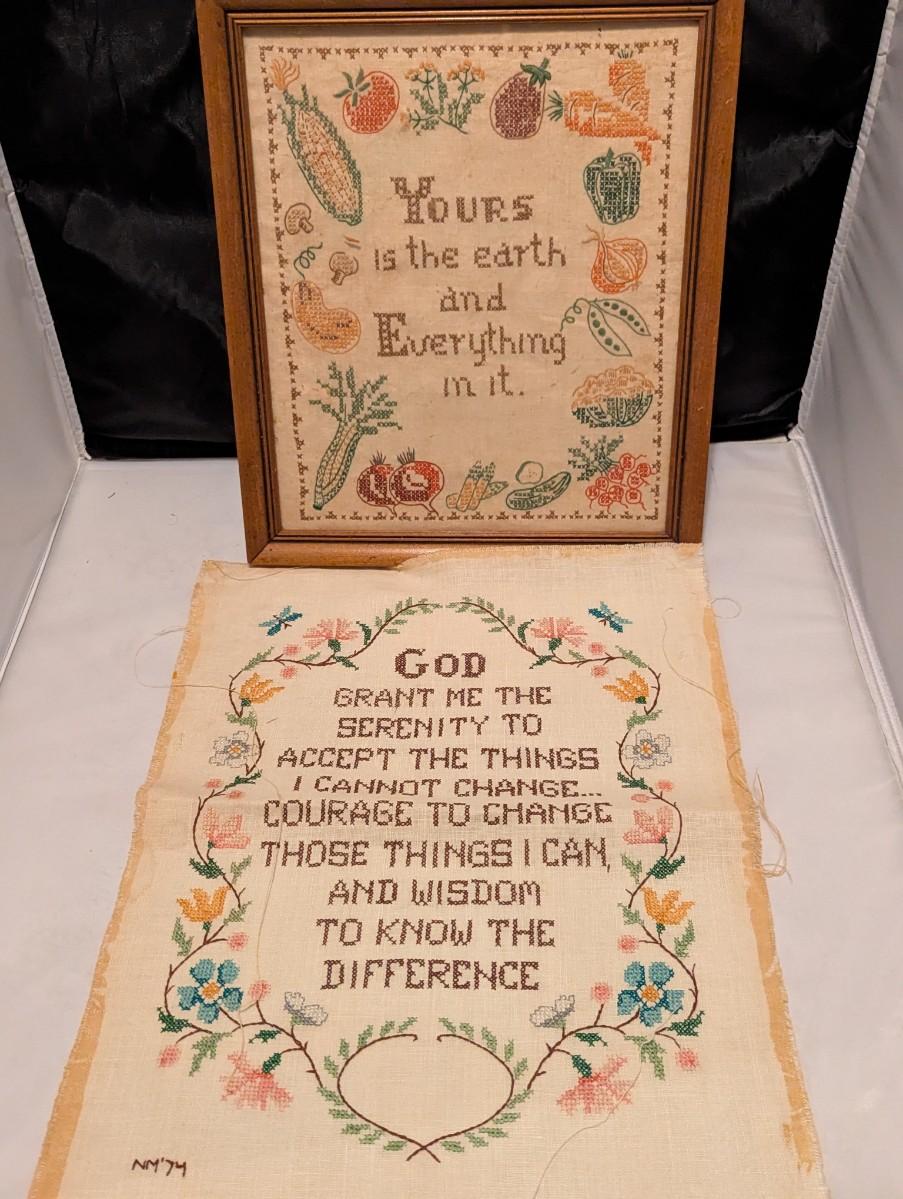 YOURS
is the earth
and
Everything
in it.
GOD
GRANT ME THE
SERENITY TO
ACCEPT THE THINGS
I CANNOT CHANGE...
COURAGE TO CHANGE
THOSE THINGS I CAN,
AND WISDOM
TO KNOW THE
DIFFERENCE
NM'74